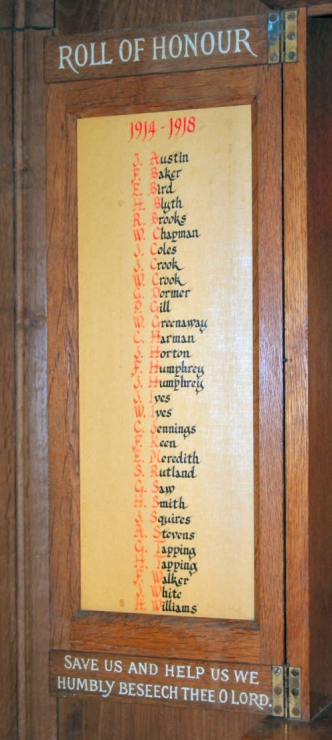 ROLL OF HONOUR
1914 - 1918
J. Austin
F. Baker
E. Bird
H. Blyth
R. Brooks
W. Chapman
J. Coles
J. Crook
W. Crook
Dormer
P. Gill
W. Greenaway
C. Harman
J. Horton
F. Humphrey
J. Humphrey
J. Ives
W. Ives
C. Jennings
Keen
E. Meredith
S. Rutland
G. Saw
H. Smith
Squires
Stevens
G. Tapping
H. Tapping
Walker
White
H. Williams
SAVE US AND HELP US WE
HUMBLY BESEECH THEE O LORD.